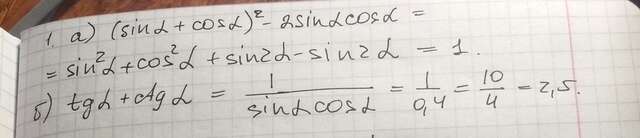 1. а) (sinα + cosα)² - 2sinαcosα =
= sin²α + cos²α + sin2α - sin2α = 1.
б) tgα + ctgα = 1/(sinαcosα) = 1/0,4 = 10/4 = 2,5.